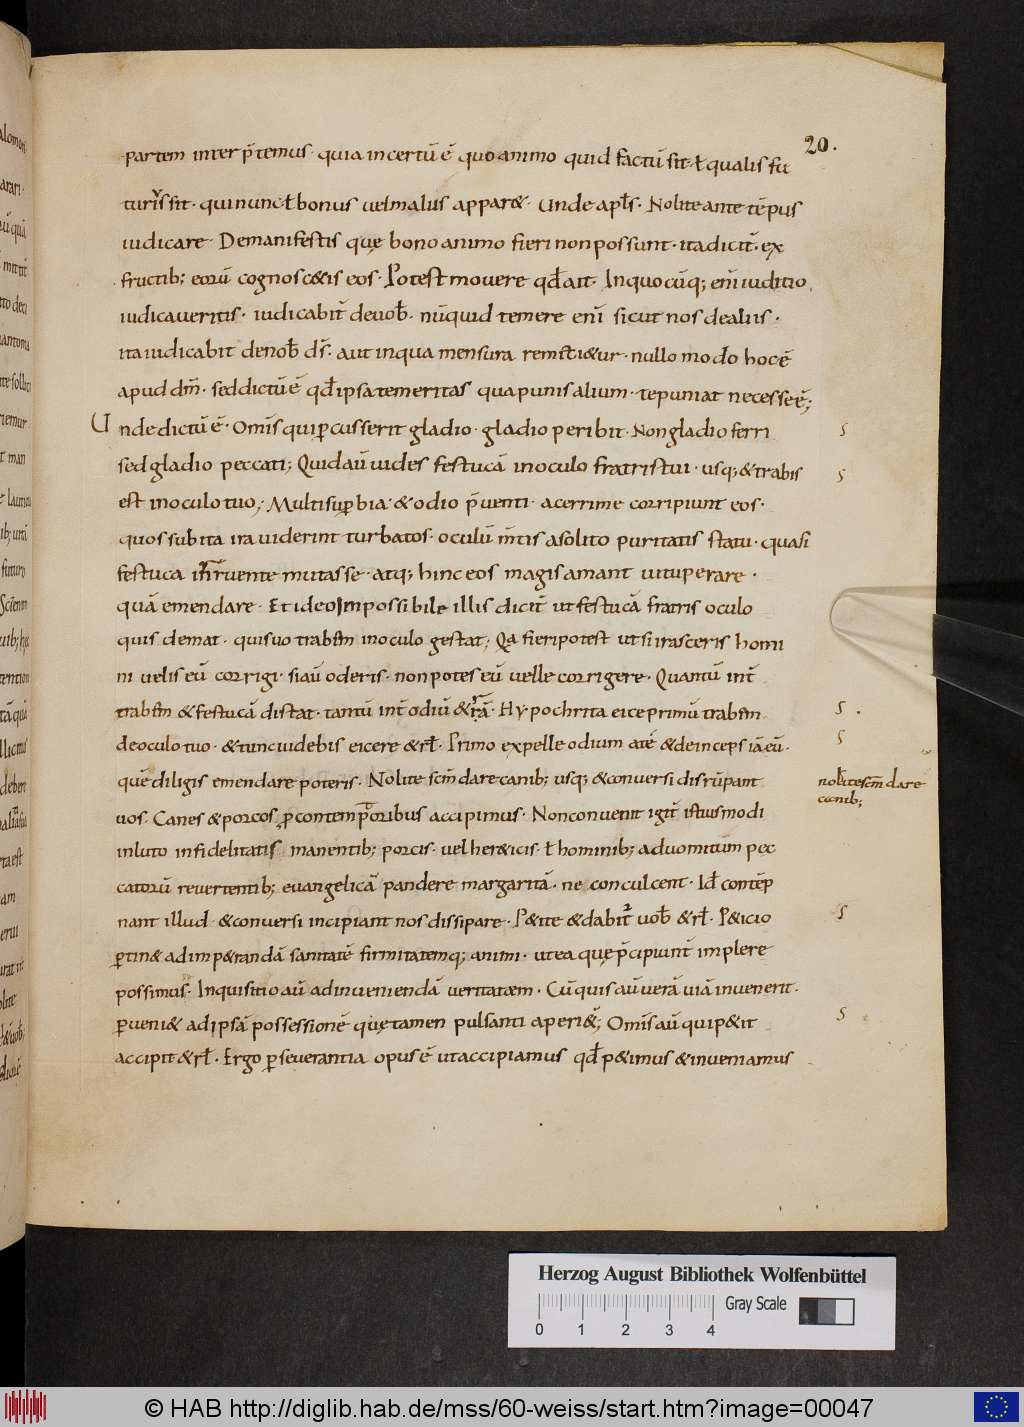 20.
partem inter p̄temus · quia incertū ē quo animo quid factū sit · ł qualis fu
turus sit · qui nunc ł bonus uel malus appar& · Unde apłs · Nolite ante tēpus
iudicare · De manifestis quę bono animo fieri non possunt · ita dicit̄ · ex
fructib; eorū cognosc&is eos · Potest mouere qđ ait · In quo cūq; eni᷑ iuditio
iudicaueritis · iudicabit̄ de uob̄ · nūquid temere eni᷑ sicut nos de aliis ·
ita iudicabit de nob̄ ds̄ · aut in qua mensura remsti&ur · nullo modo hoc ē
apud dm̄ · sed dictū ē qđ ipsa temeritas qua punis alium · te puniat necesse ē;
Unde dictū ē · Omīs qui ꝑcusserit gladio · gladio peribit · Non gladio ferri
sed gladio peccati; Quid aū uides festucā in oculo fratris tui · usq; & trabis
est in oculo tuo; Multi suꝑbia · & odio p̄uenti · acerrime corripiunt eos ·
quos subita ira uiderint turbatos · oculū m̄tis a solito puritatis statu · quasi
festuca inruente mutasse · atq; hinc eos magis amant uituperare ·
quā emendare · Et ideo Inpossibile illis dicit̄ ut festucā fratris oculo
quis demat · qui suo trabem in oculo gestat; Qa fieri potest ut si irasceris homi
ni uelis eū corrigi · si aū oderis · non potes eū uelle corrigere · Quantū int̄
trabem & festucā distat · tantū int̄ odiū & irā · Hypochrita eice primū trabem
de oculo tuo · & tunc uidebis eicere & rł · Primo expelle odium a te · & deinceps iā eū ·
quē diligis emendare poteris · Nolite scm̄ dare canib; usq; & conuersi disrūpant
uos · Canes & porcos ꝑ contemptoribus accipimus · Non conuenit igit̄ istius modi
in luto infidelitatis manentib; porcis · uel her&icis · ł hominib; ad uomitum pec
catorū reuertentib; euangelicā pandere margaritā · ne conculcent · Id contēp
nant illud · & conuersi incipiant nos dissipare · P&ite & dabit̄ uob̄ & rł · P&icio
ꝑtin& ad imp&randā sanitatē firmitatemq; animi · ut ea quę p̄cipiunt̄ implere
possimus · Inquisitio aū ad inueniendā ueritatem · Cū quis aū uerā uiā inuenerit ·
ꝑueni& ad ipsā possessionē quę tamen pulsanti aperi&̄; Omīs aū qui p&it
accipit & rł · Ergo ꝑseuerantia opus ē ut accipiamus qđ p&imus & inueniamus
nolite scm̄ dare
canib;
Herzog August Bibliothek Wolfenbüttel
Gray Scale
0 1 2 3 4
© HAB http://diglib.hab.de/mss/60-weiss/start.htm?image=00047